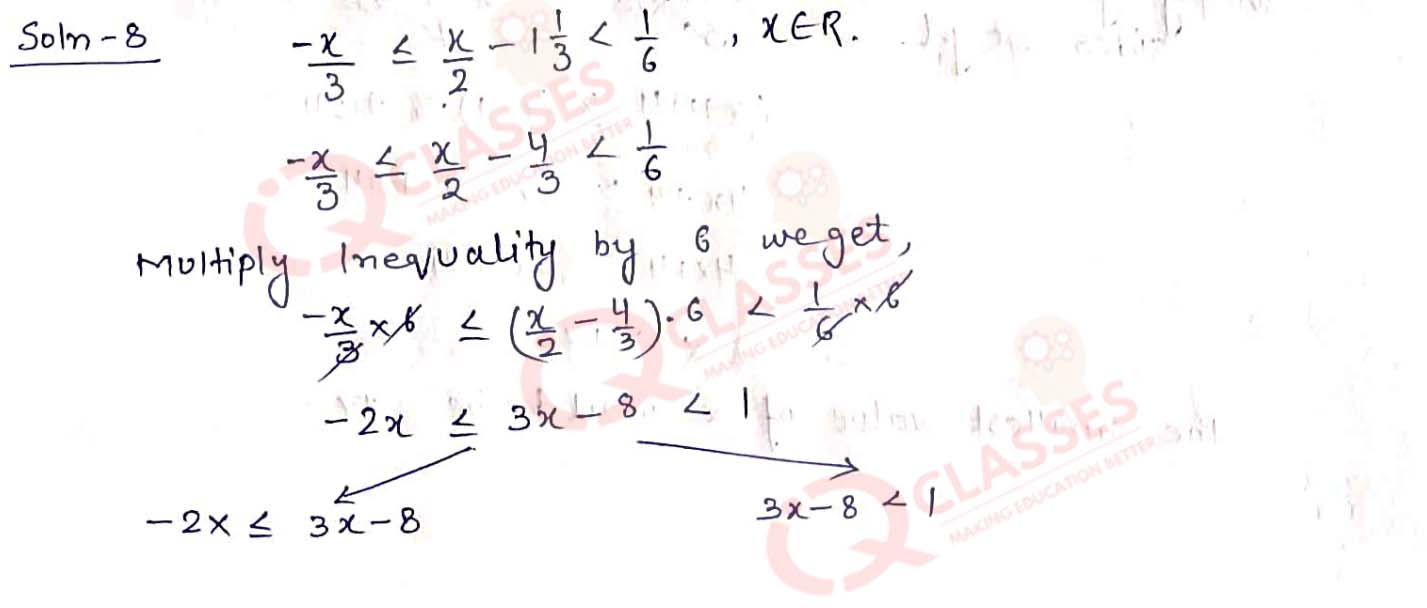 Soln - 8 -x/3 ≤ x/2 - 1 1/3 < 1/6 , x∈R.
-x/3 ≤ x/2 - 4/3 < 1/6
Multiply Inequality by 6 we get,
-x/3 × 6 ≤ (x/2 - 4/3) · 6 < 1/6 × 6
-2x ≤ 3x - 8 < 1
-2x ≤ 3x - 8 3x - 8 < 1
CLASSES
MAKING EDUCATION BETTER
CLASSES
MAKING EDUCATION BETTER
CLASSES
MAKING EDUCATION BETTER